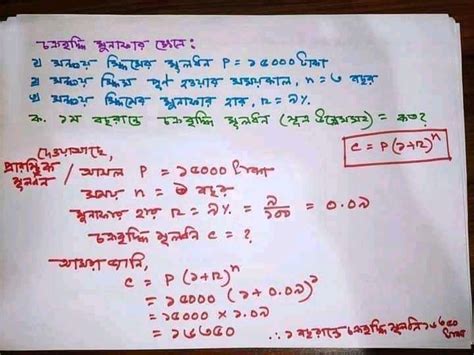 চক্রবৃদ্ধি মুনাফার ক্ষেত্রে:
১) সঞ্চয় স্কিমের মূলধন P = ১৫০০০ টাকা
২) সঞ্চয় স্কিম পূর্ণ হওয়ার সময়কাল, n = ৩ বছর
৩) সঞ্চয় স্কিমের মুনাফার হার, r = ৯%
ক. ১ম বছরান্তে চক্রবৃদ্ধি মূলধন (সূত্র উল্লেখসহ) = কত?
C = P(১+r)ⁿ
দেওয়াআছে,
প্রারম্ভিক মূলধন / আসল P = ১৫০০০ টাকা
সময় n = ৩ বছর
মুনাফার হার r = ৯% = ৯/১০০ = ০.০৯
চক্রবৃদ্ধি মূলধন C = ?
আমরা জানি,
C = P(১+r)ⁿ
= ১৫০০০ (১+০.০৯)^১
= ১৫০০০ × ১.০৯
= ১৬৩৫০
∴ ১ বছরান্তে চক্রবৃদ্ধি মূলধন ১৬৩৫০ টাকা